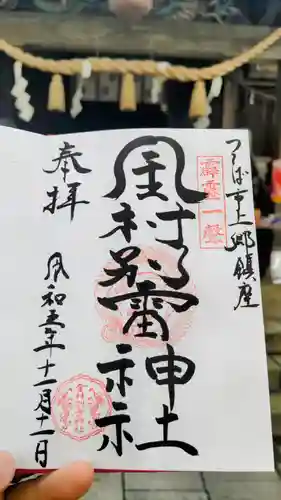 つくば市上郷鎮座
霹靂一聲
金村別雷神社
奉拝
令和五年十一月十一日